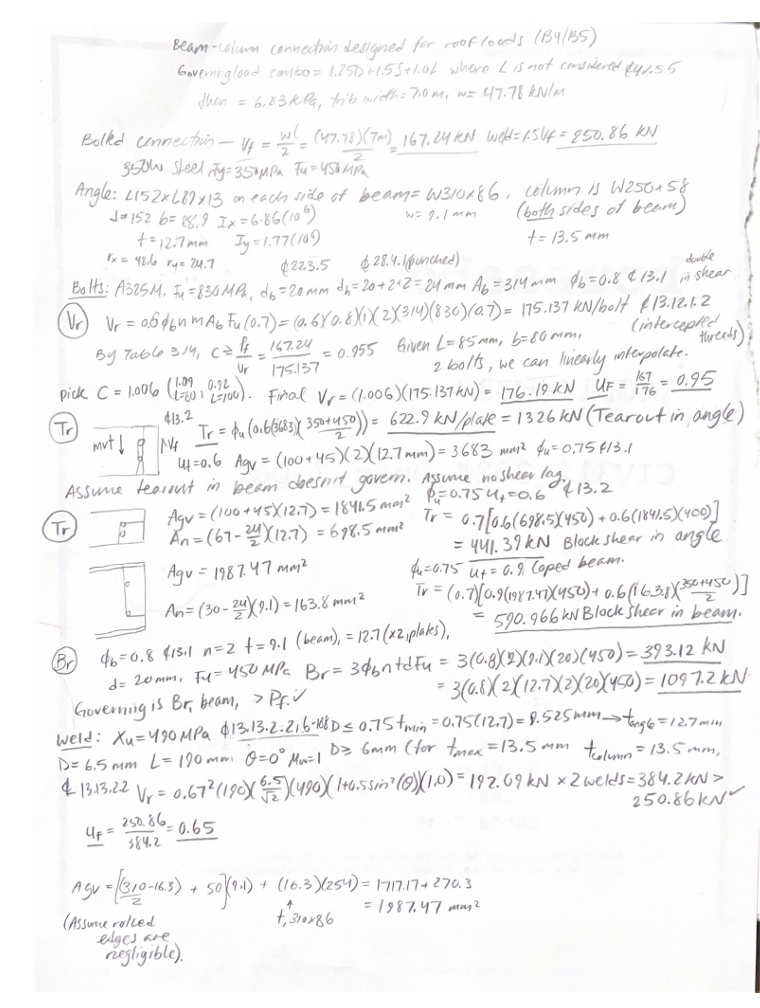 Beam-column connection designed for roof loads (B4/B5)
Governing load combo = 1.25D+1.5S+1.0L where L is not considered ¢4.1.5.5
then = 6.83kPa, trib width=7.0m, w=47.78 kN/m
Bolted connection — Vf = wl/2 = (47.78)(7m)/2 = 167.24 kN Weld=1.5Vf = 250.86 kN
350W Steel Fy=350MPa Fu=450MPa
Angle: L152×L89×13 on each side of beam= W310×86, column is W250×58
d=152 b=88.9 Ix=6.86(10⁶) w=9.1mm (both sides of beam)
t=12.7mm Iy=1.77(10⁶) t=13.5 mm
rx=48.6 ry=24.7 ¢22.3.5 ¢28.4.1(punched)
Bolts: A325M. Fu=830MPa, db=20mm dh=20+2+2=24mm Ab=314mm ϕb=0.8 ¢13.1 double in shear
Vr Vr=0.6ϕb n m Ab Fu(0.7)=(0.6)(0.8)(1)(2)(314)(830)(0.7)= 175.137 kN/bolt ¢13.12.1.2
(intercepted threads)
By Table 3.14, C ≥ Pf/Vr = 167.24/175.137 = 0.955 Given L=85mm, b=80mm,
2 bolts, we can linearly interpolate.
pick C=1.006 (1.09 L=80, 0.92 L=100). Final Vr=(1.006)(175.137kN)= 176.19 kN UF = 167/176 = 0.95
Tr ¢13.2 Tr=ϕu(0.6(3683)(350+450/2))= 622.9 kN/plate = 1326 kN (Tearout in angle)
mvt↓ Vf Ut=0.6 Agv=(100+45)(2)(12.7mm)=3683 mm² ϕu=0.75 ¢13.1
Assume tearout in beam doesn't govern. Assume no shear lag.
Tr Agv=(100+45)(12.7)=1841.5mm² ϕu=0.75 Ut=0.6 ¢13.2
An=(67-24/2)(12.7)=698.5mm² Tr= 0.7[0.6(698.5)(450)+0.6(1841.5)(400)]
= 441.39kN Block shear in angle
Agv=1987.47mm² ϕu=0.75 Ut=0.9. Coped beam.
An=(30-24/2)(9.1)=163.8mm² Tr=(0.7)[0.9(1987.47)(450)+0.6(163.8)(350+450/2)]
= 590.966kN Block shear in beam.
Br ϕb=0.8 ¢13.1 n=2 t=9.1 (beam), =12.7(x2, plates),
d=20mm, Fu=450 MPa Br=3ϕb n t d Fu=3(0.8)(2)(9.1)(20)(450)=393.12 kN
Governing is Br, beam, > Pf.✓ =3(0.8)(2)(12.7)(2)(20)(450)=1097.2 kN
Weld: Xu=490MPa ¢13.13.2.2, D≤0.75tmin=0.75(12.7)=9.525mm→tangle=12.7mm
D=6.5mm L=190mm θ=0° Mw=1 D≥6mm (for tmax=13.5mm tcolumn=13.5mm,
¢13.13.2.2 Vr=0.67²(190)(6.5/√2)(490)(1+0.5sin²(θ))(1.0)=192.09 kN ×2welds=384.2kN>
250.86kN✓
UF=250.86/384.2=0.65
Agv=[(310-16.3)/2 + 50](9.1) + (16.3)(254)=1717.17+270.3
=1987.47 mm²
(Assume rolled edges are negligible). ↑ t, 310×86